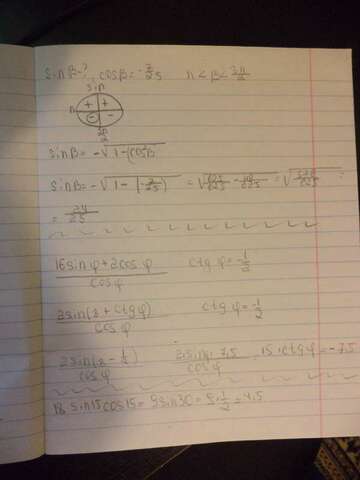 sin β-? cosβ=-7/25 π<β<3π/2
sin
+ +
- -
3π/2
sinβ= -√1-(cosβ
sinβ= -√1-(-7/25) =√625/625 - 49/625 =√576/625 =
= 24/25
16sin φ+2cos φ/cos φ ctg φ=-1/2
2sin(8+ctg φ)/cos φ ctg φ=-1/2
2sin(8-1/2)/cos φ 2sinφ·7,5/cosφ =15·ctg φ=-7,5
18 sin15cos15=9sin30=9·1/2=4,5